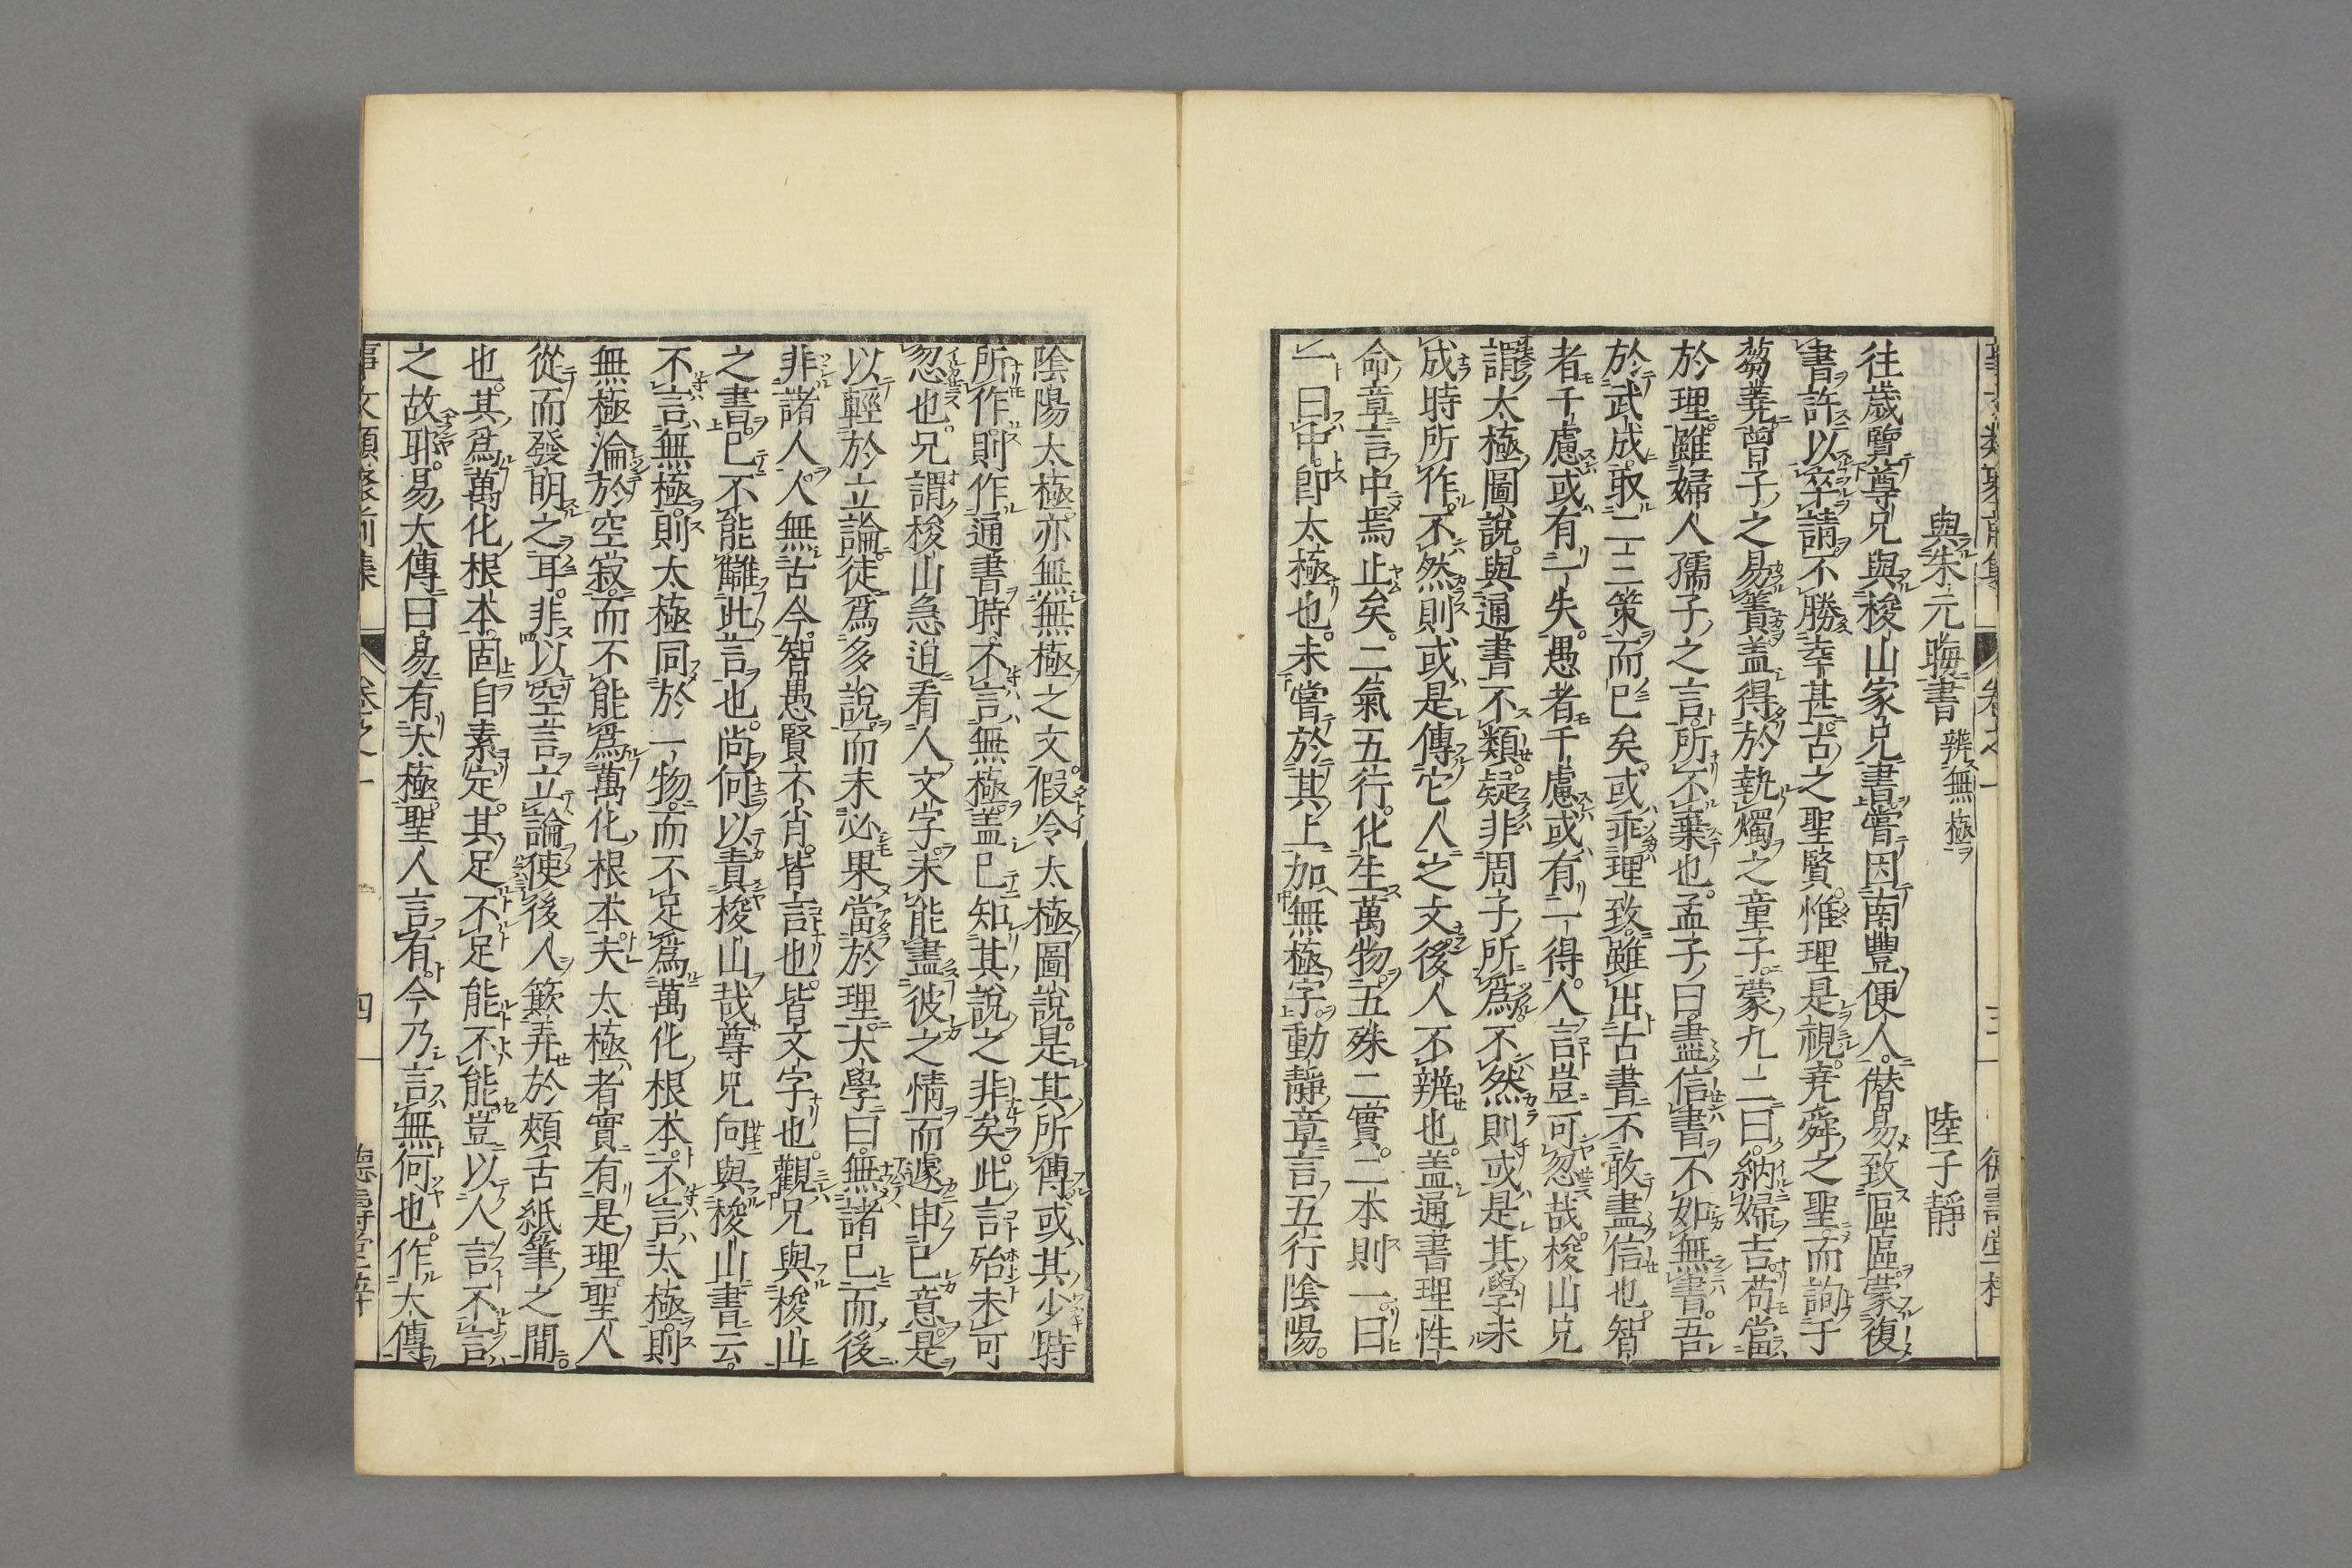 與朱元晦書 辨無極 陸子靜
往歲覽尊兄與梭山家兄書嘗因南豐便人僭易致區區蒙復
書許以卒請不勝幸甚古之聖賢惟理是視堯舜之聖而詢于
芻蕘曾子之易簀蓋得於執燭之童子蒙九二曰納婦吉苟當
於理雖婦人孺子之言所不棄也孟子曰盡信書不如無書吾
於武成取二三策而已矣或乖理致雖出古書不敢盡信也智
者千慮或有一失愚者千慮或有一得人言豈可忽哉梭山兄
謂太極圖說與通書不類疑非周子所爲不然則或是其學未
成時所作不然則或是傳它人之文後人不辨也蓋通書理性
命章言中焉止矣二氣五行化生萬物五殊二實二本則一曰
一曰中即太極也未嘗於其上加無極字動靜章言五行陰陽
陰陽太極亦無無極之文假令太極圖說是其所傳或其少時
所作則作通書時不言無極蓋已知其說之非矣此言殆未可
忽也兄謂梭山急迫看人文字未能盡彼之情而遽申已意是
以輕於立論徒爲多說而未必果當於理大學曰無諸已而後
非諸人人無古今智愚賢不肖皆言也皆文字也觀兄與梭山
之書已不能讎此言也尚何以責梭山哉尊兄向與梭山書云
不言無極則太極同於一物而不足爲萬化根本不言太極則
無極淪於空寂而不能爲萬化根本夫太極者實有是理聖人
從而發明之耳非以空言立論使後人簸弄於頰舌紙筆之間
也其爲萬化根本固自素定其足不足能不能豈以人言不言
之故耶易大傳曰易有太極聖人言有今乃言無何也作大傳
事文類聚前集 卷之一 四 德壽堂梓